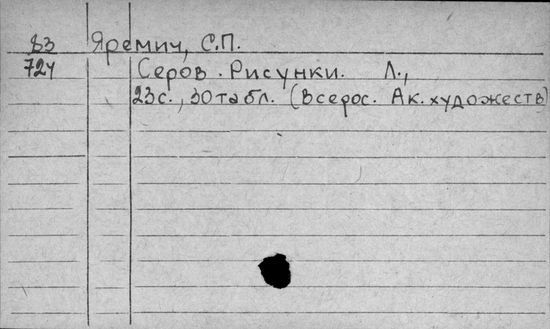 83 Яремич, С.П.
724 Серов. Рисунки. Л.,
23с., 30 табл. (Всерос. Ак. художеств)